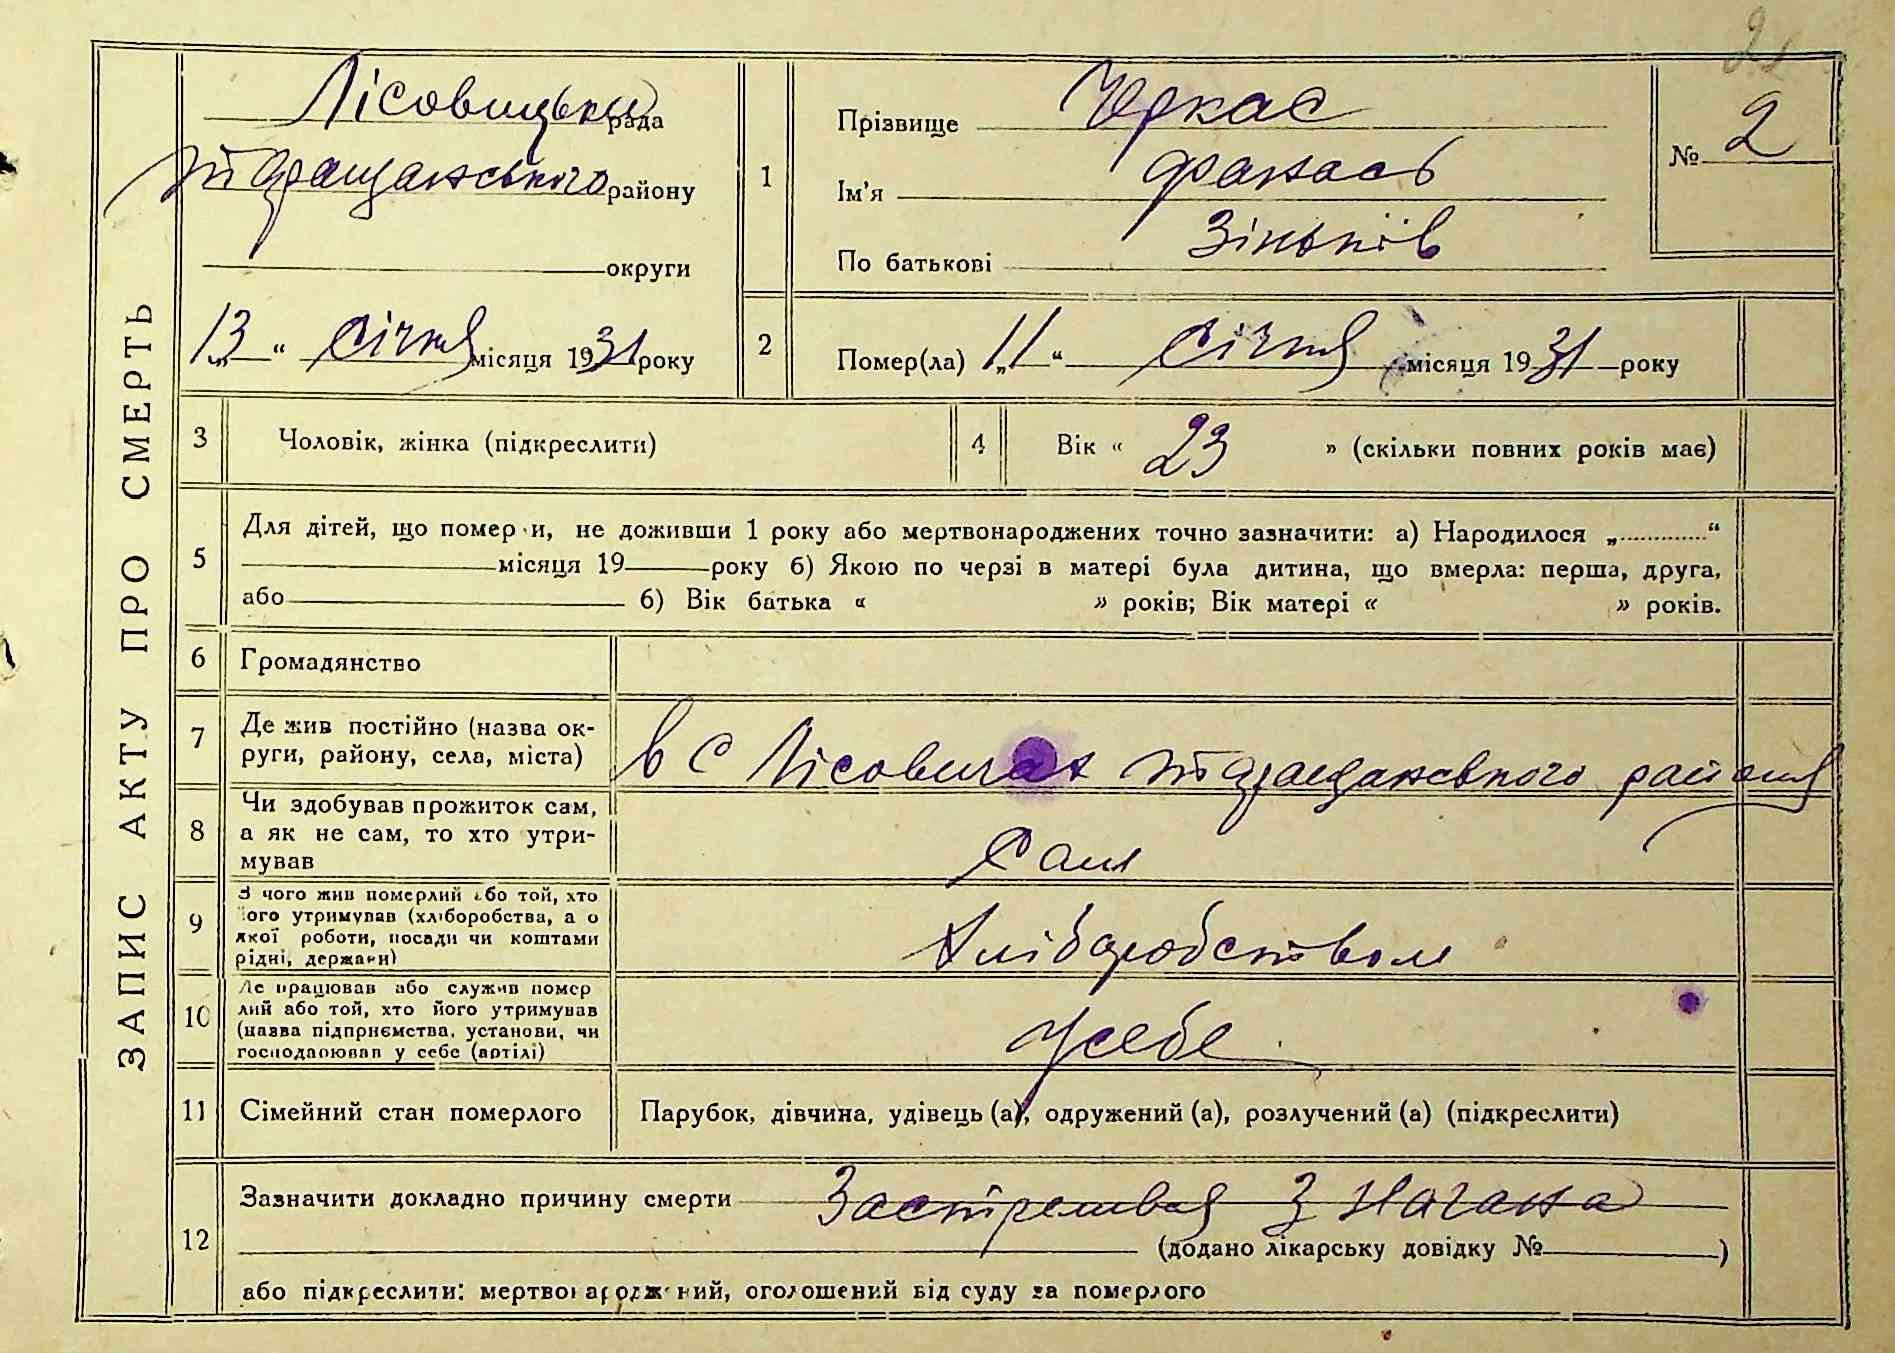 21
ЗАПИС АКТУ ПРО СМЕРТЬ
Лісовицька рада
Таращанського району
округи
„13“ Січня місяця 1931 року
1
Прізвище Черкас
Ім'я Фанась
По батькові Зіньків
№ 2
2
Помер(ла) „11“ Січня місяця 1931 року
3 Чоловік, жінка (підкреслити)
4 Вік « 23 » (скільки повних років має)
5
Для дітей, що помер и, не доживши 1 року або мертвонароджених точно зазначити: а) Народилося „............“
місяця 19 року б) Якою по черзі в матері була дитина, що вмерла: перша, друга,
або б) Вік батька « » років; Вік матері « » років.
6 Громадянство
7 Де жив постійно (назва ок-
руги, району, села, міста)
в с Лісовичах Таращанського району
8 Чи здобував прожиток сам,
а як не сам, то хто утри-
мував
Сам
9 З чого жив померлий або той, хто
його утримував (хліборобства, а о
якої роботи, посади чи коштами
рідні, держави)
Хліборобством
10 Де працював або служив помер
лий або той, хто його утримував
(назва підприємства, установи, чи
господарював у себе (артілі)
Усебе
11 Сімейний стан померлого
Парубок, дівчина, удівець (а), одружений (а), розлучений (а) (підкреслити)
12
Зазначити докладно причину смерти Застрелився З Нагана
(додано лікарську довідку № )
або підкреслити: мертвонароджений, оголошений від суду за померлого